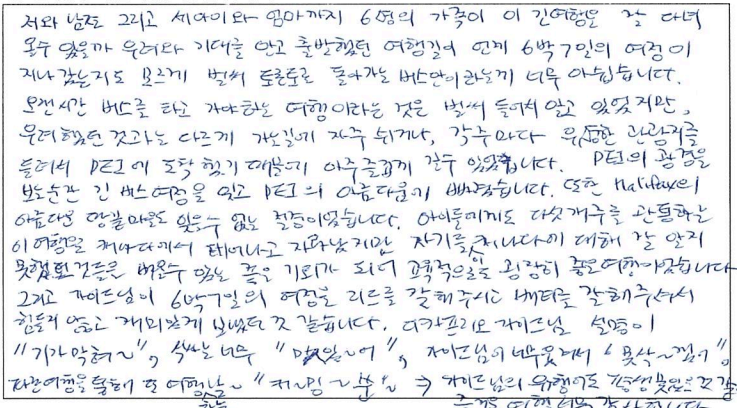 저와 남편 그리고 세아이와 엄마까지 6명의 가족이 이 긴여행을 잘 다녀
올수 있을까 우려와 기대를 안고 출발했던 여행길이 언제 6박7일의 여정이
지나갔는지도 모르게 벌써 토론토로 돌아가는 버스안이라는게 너무 아쉽습니다.
오랜시간 버스를 타고 가야하는 여행이라는 것은 벌써 들어서 알고 있었지만,
우려했던 것과는 다르게 가는길에 자주 쉬거나, 각주마다 유명한 관광지를
들러서 PEI에 도착했기 때문에 아주즐겁게 갈수 있었습니다. PEI의 광경을
보는순간 긴 버스여정을 잊고 PEI의 아름다움에 빠졌습니다. 또한 Halifax의
아름다운 항구마을도 잊을수 없는 절경이었습니다. 아이들에게도 다섯개주를 관통하는
이 여행은 캐나다에서 태어나고 자라났지만 자기들 캐나다에 대해 잘 알지
못했던것들을 배울수 있는 좋은 기회가 되어 교육적으로도 굉장히 좋은여행이었습니다
그리고 가이드님이 6박7일의 여정을 리드를 잘해주시고 배려를 잘해주셔서
힘들지 않고 재미있게 보냈던것 같습니다. 디카프리오 가이드님 설명이
"기가막혀~", 식사는 너무 "맛있~어", 가이드님이 너무웃겨서 "못살~겠어",
다음여행을 통해 또 여행 "커~밍~쑨" ⇒ 가이드님의 유행어도 평생못잊을것 같
여행 너무 감사합니다